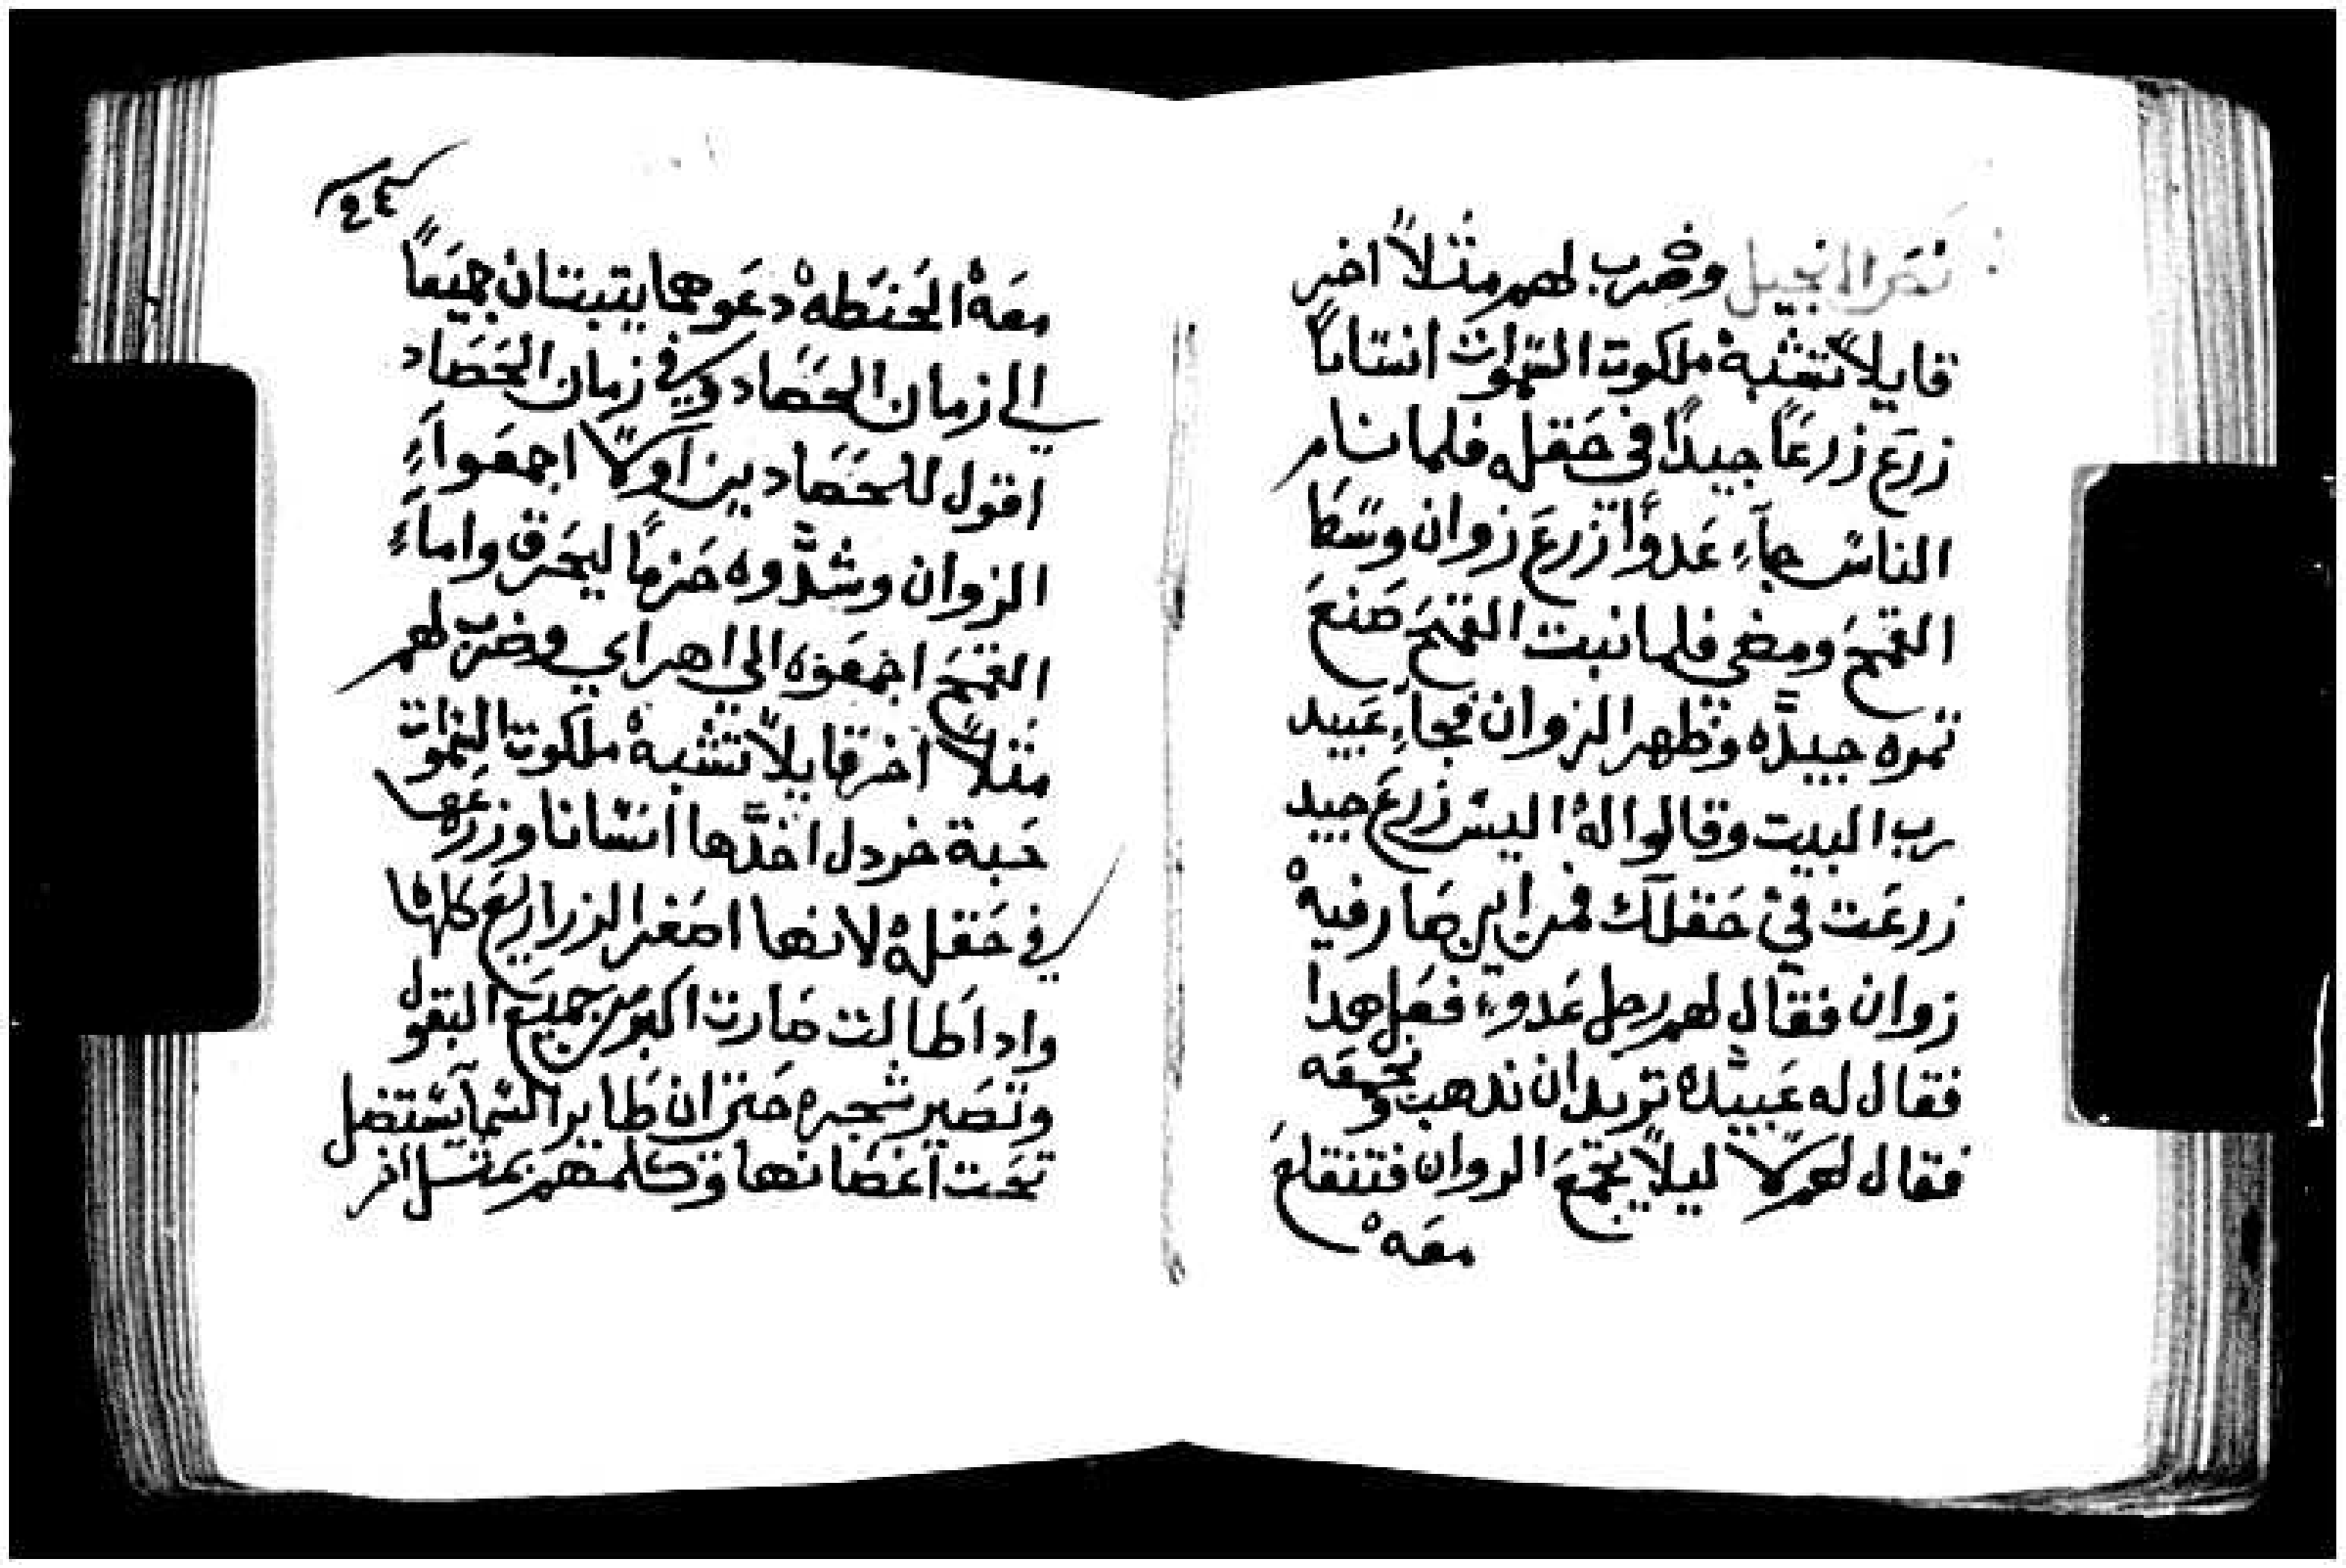 نص الانجيل وضرب لهم مثلاً اخر
قايلاً تشبه ملكوت السموات انساناً
زرع زرعاً جيداً في حقله فلما نام
الناس جآء عدوّاً زرع زوان وسط
القمح ومضي فلما نبت القمح صنع
تمره جيدّه وظهر الزوان فجاء عبيد
رب البيت وقالوا له اليس زرع جيد
زرعت في حقلك فمن اين صار فيه
زوان فقال لهم رجل عدوء فعل هدا
فقال له عبيدّه تريد ان ندهب نجمعه
فقال لهم لا ليلاً نجمع الروان فتنقلع
معه
٢٤
معه الحنطه دعوهما ينبتان جميعاً
الي زمان الحصاد وفي زمان الحصاد
اقول للحصادين اولاً اجمعواء
الزوان وشدّوه حزماً ليحرق واماء
القمح اجمعوه الي اهراي وضرب لهم
مثلاً اخر قايلاً تشبه ملكوت السموات
حبة خردل اخدّها انسانا وزرعها
في حقله لانها اصغر الزراريع كلها
وادا طالت صارت اكبر من جميع البقول
وتصير شجره حتي ان طاير السمآ يستضل
تحت اغصانها وكلمهم بمتل اخر